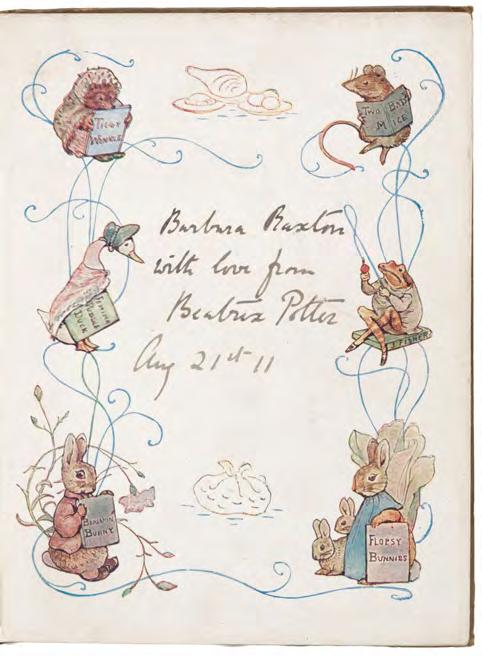 TIGGY
WINKLE
TWO BAD
MICE
Barbara Ruxton
with love from
Beatrix Potter
Aug 21st 11
JEMIMA
PUDDLE
DUCK
J. FISHER
BENJAMIN
BUNNY
FLOPSY
BUNNIES